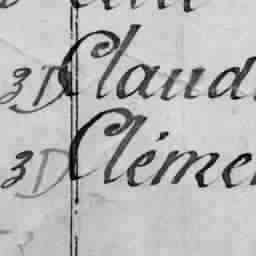 3D Claud
3D Cléme